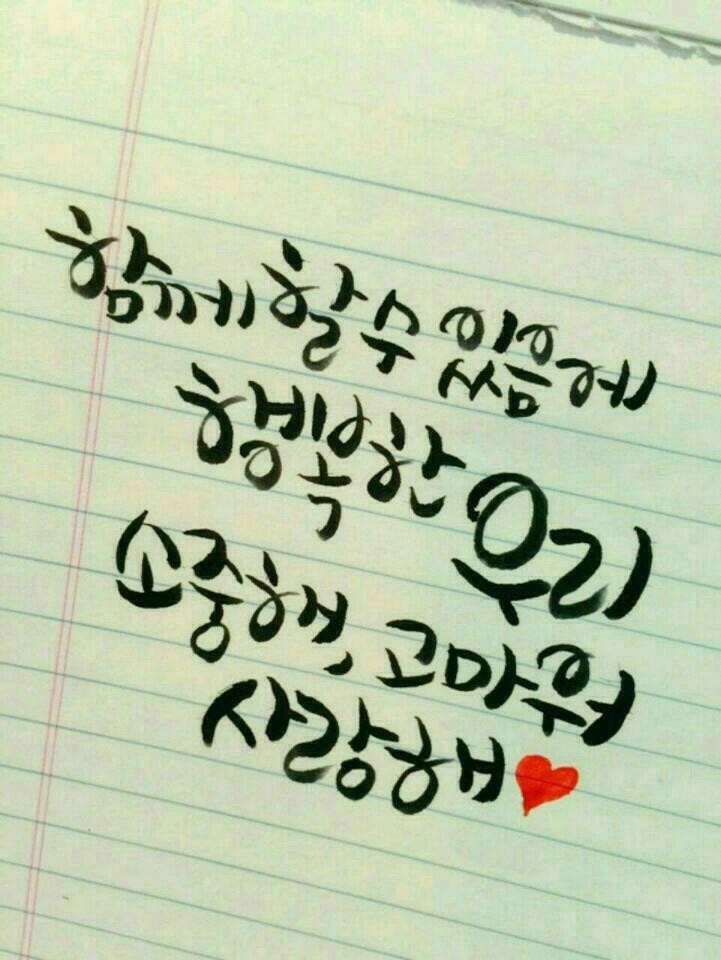 함께 할 수 있음에
행복한 우리
소중해, 고마워
사랑해